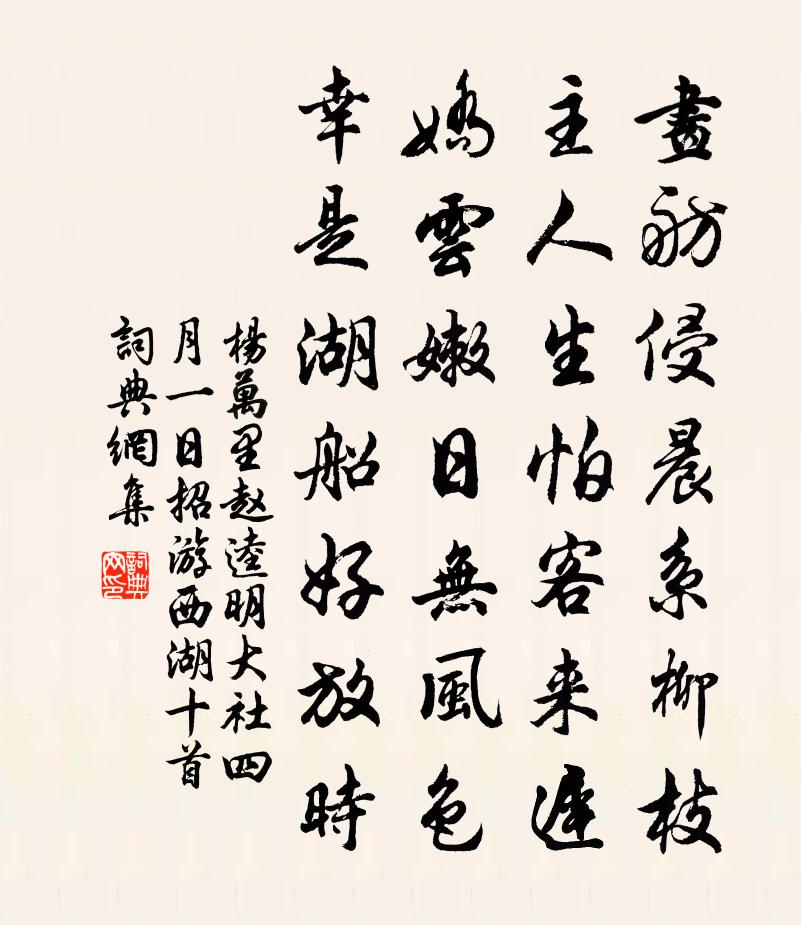 畫舫侵晨系柳枝
主人生怕客来遲
嬌雲嫩日無風色
幸是湖船好放時
楊萬里赵逵明大社四
月一日招游西湖十首
詞典網集
詞典
网印